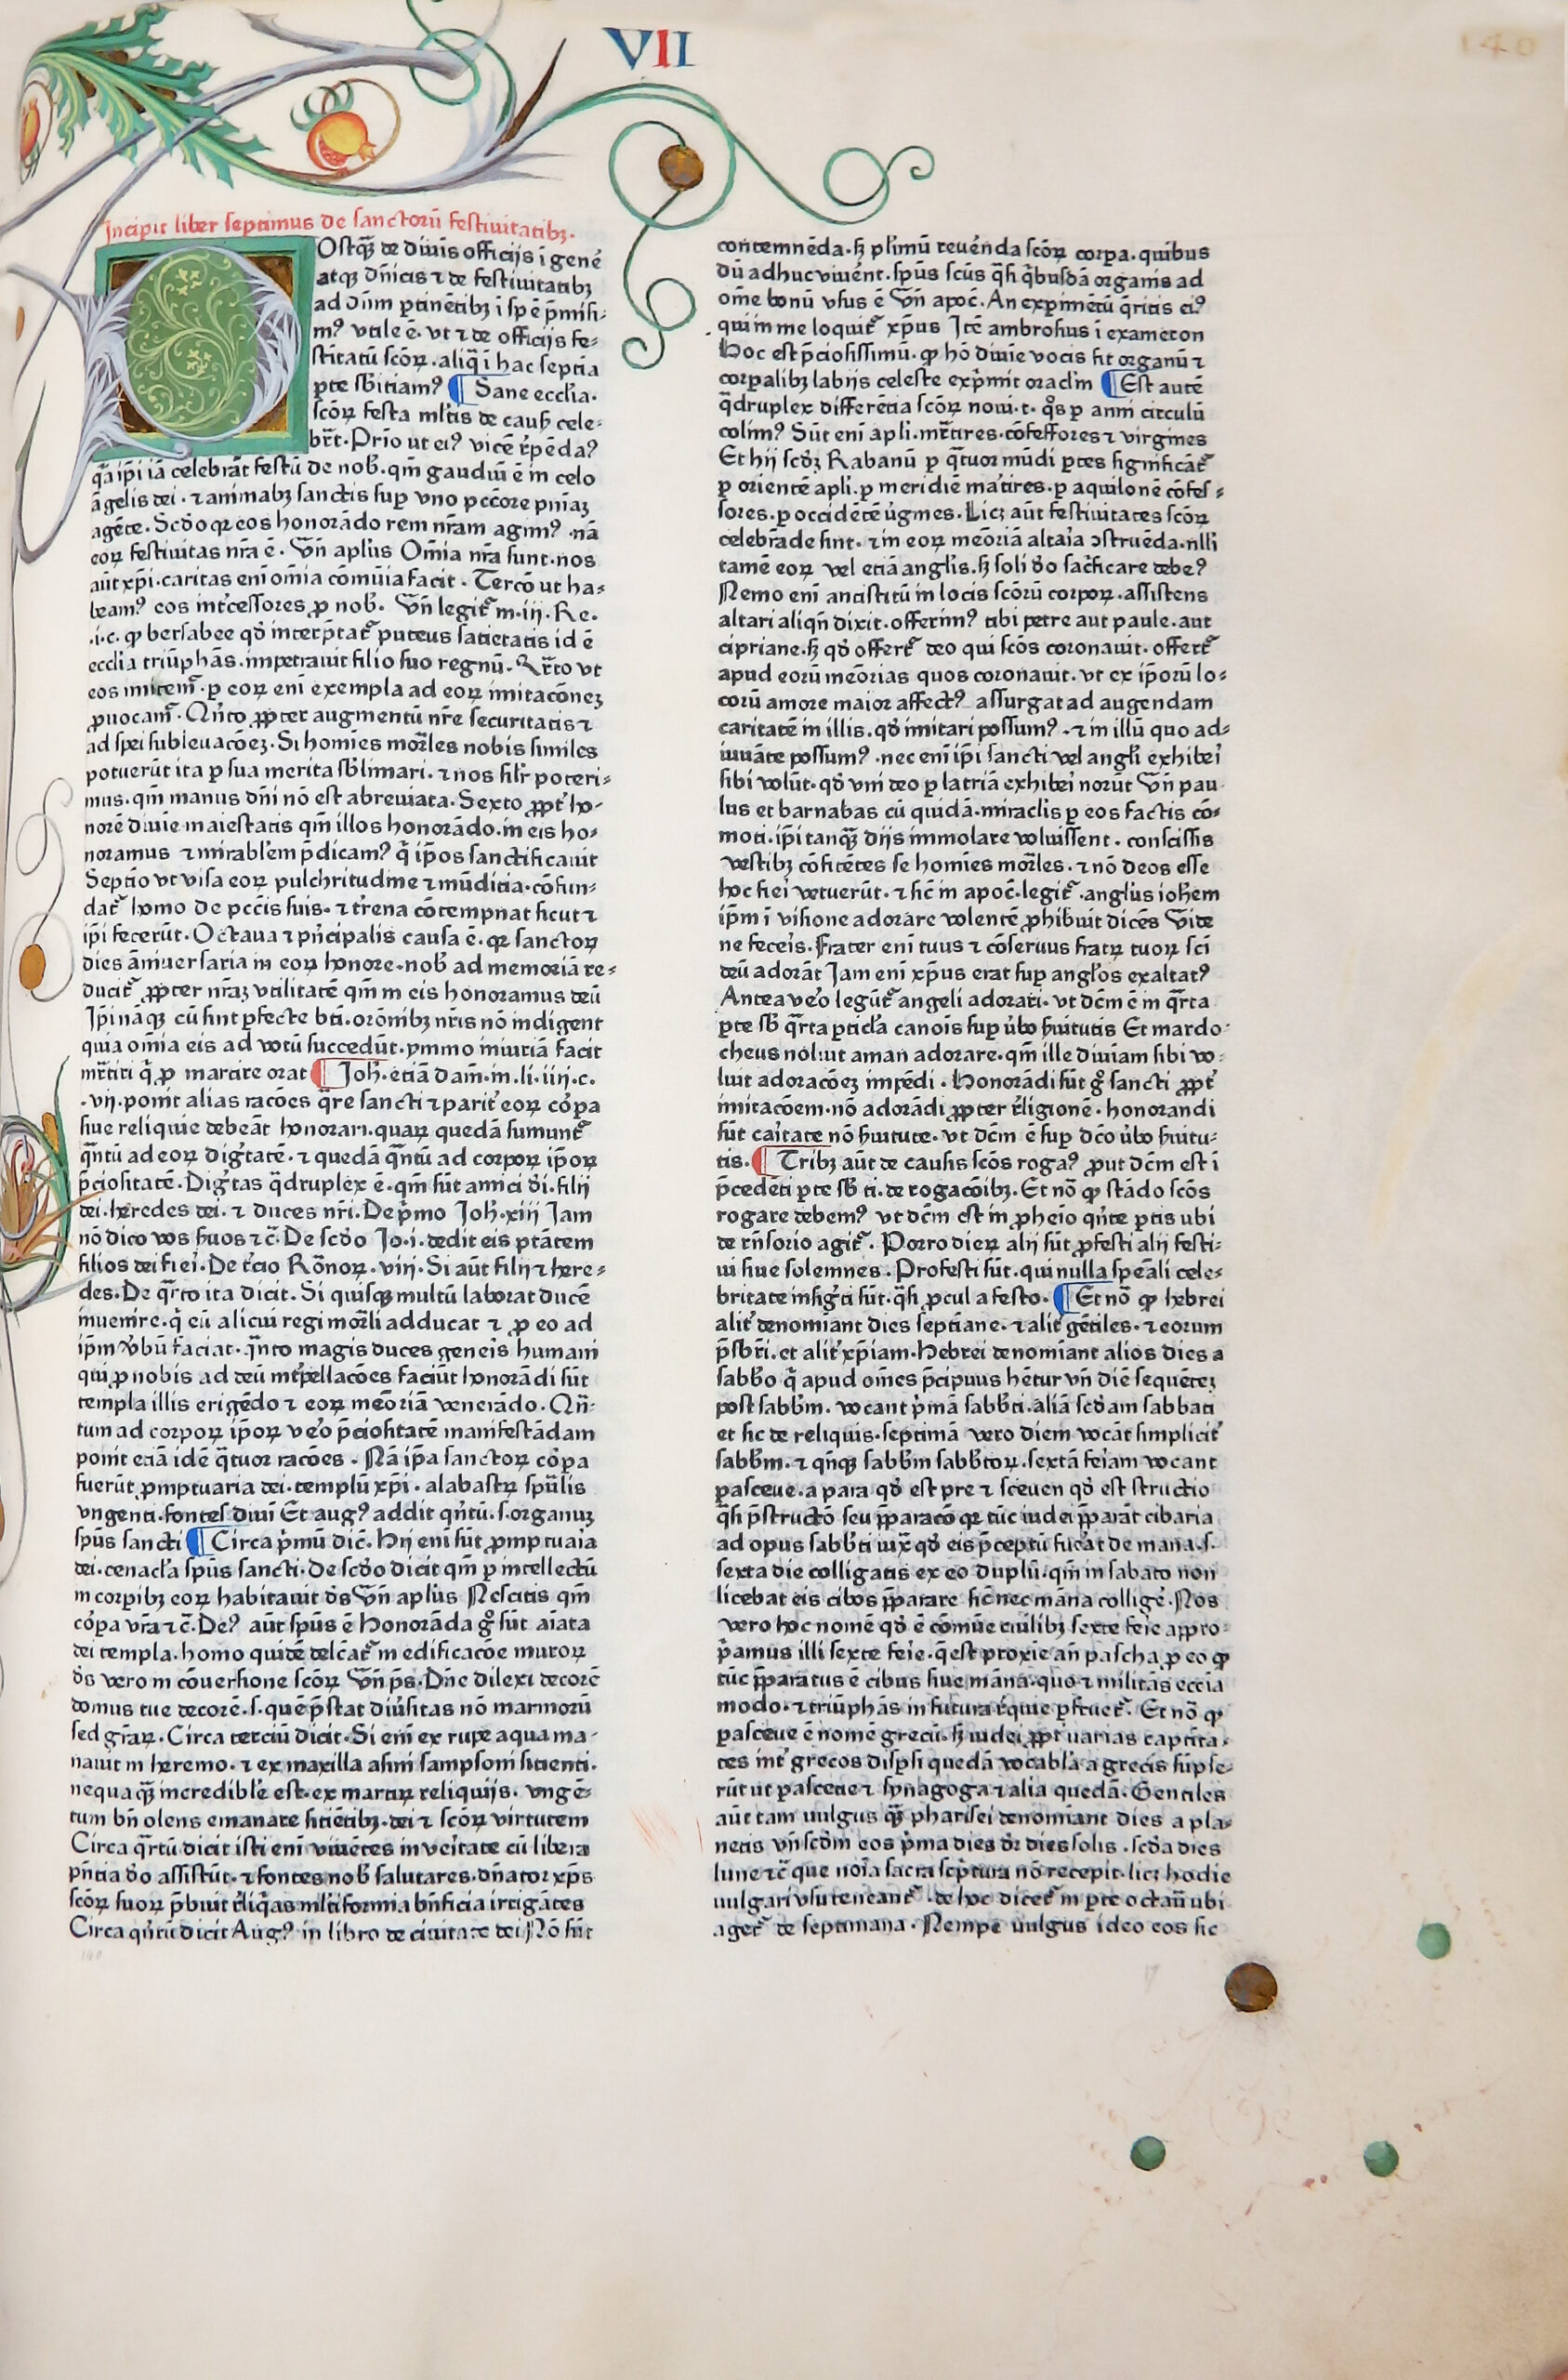 VII
140
Incipit liber septimus de sanctorū festiuitatibꝫ.
POstqꝫ̄ de diuīs officijs ī genē
atqꝫ dn̄icis ⁊ de festiuitatibꝫ
ad dūm ꝑtinētibꝫ ī spē p̄misi-
mꝰ vtile ē. vt ⁊ de officijs fe-
stiitatū scōꝝ. aliq̄ ī hac septīa
ꝑte sb̄itiamꝰ ¶ Sane eccl̄ia.
scōꝝ festa ml̄tis de cauſꝭ cele-
br̄t. Prīo ut eiꝰ vicē rēpēdaꝰ
q̄a ip̄i iā celebrāt festū de nob̄. qm̄ gaudiū ē in celo
āgelis dei. ⁊ animabꝫ sanctis suꝑ vno pcc̄ore pnīaꝫ
agēte. Scd̄o qꝛ eos honorādo rem nr̄am agimꝰ. nā
eoꝝ festiuitas nr̄a ē. Vn̄ apl̄us Om̄ia nr̄a sunt. nos
aūt xp̄i. caritas enī om̄ia cōmūia facit. Tercō ut ha-
beamꝰ eos int̄cessores ꝓ nob̄. Vn̄ legit̄ m. iij. Re.
.i. c. ꝙ bersabee qd̄ interp̄tat̄ puteus satietatis id ē
eccl̄ia triūphās. impetrauit filio suo regnū. Qr̄to vt
eos imitem̄. ꝑ eoꝝ enī exempla ad eoꝝ imitacōnez
ꝓuocam̄. Qn̄to ꝓpter augmentū nr̄e securitatis ⁊
ad spei subleuacōeꝫ. Si homīes mor̄les nobis similes
potuerūt ita ꝑ sua merita sb̄limari. ⁊ nos silr̄ poteri-
mus. qm̄ manus dn̄i nō est abreuiata. Sexto ꝓpt̄ ho-
norē diuīe maiestatis qm̄ illos honorādo. in eis ho-
noramus ⁊ mirabl̄em p̄dicamꝰ q̄ ip̄os sanctificauit
Septīo vt visa eoꝝ pulchritudīne ⁊ mūdicia. cōfun-
dat̄ homo de pcc̄is suis. ⁊ tr̄ena cōtempnat sicut ⁊
ip̄i fecerūt. Octaua ⁊ pn̄cipalis causa ē. qꝛ sanctoꝝ
dies āniuersaria in eoꝝ honore. nob̄ ad memoriā re-
ducit̄ ꝓpter nr̄aꝫ vtilitatē qm̄ in eis honoramus deū
Ip̄i nāqꝫ cū sint ꝑfecte bt̄i. orōnibꝫ nr̄is nō indigent
quia om̄ia eis ad votū succedūt. ymmo iniuriā facit
mr̄tiri q̄ ꝓ martire orat ¶ Joh̄. etiā dam̄. in. li. iiij. c.
.vij. ponit alias racōes q̄re sancti ⁊ parit̄ eoꝝ cōꝑa
siue reliquie debeāt honorari. quaꝝ quedā sumunt̄
q̄ntū ad eoꝝ dign̄tatē. ⁊ quedā q̄ntū ad corpoꝝ ip̄oꝝ
p̄ciositatē. Dign̄tas q̄druplex ē. qm̄ sūt amici d̄i. filij
dei. heredes dei. ⁊ duces nr̄i. De p̄mo Joh̄. xiij Jam
nō dico vos ẜuos ⁊c̄. De scd̄o Jo. i. dedit eis ptātem
filios dei fiei. De tc̄io Rōnoꝝ. viij. Si aūt filij ⁊ here-
des. De qr̄to ita dicit. Si quisqꝫ multū laborat ducē
inuenire. q̄ eū alicui regi mor̄li adducat ⁊ ꝓ eo ad
ip̄m v̄bū faciat. q̄nto magis duces genēis humani
qui ꝓ nobis ad deū int̄pellacōes faciūt honorādi sūt
templa illis erigēdo ⁊ eoꝝ mēoriā venerādo. Qn̄-
tum ad corpoꝝ ip̄oꝝ vēo p̄ciositatē manifestādam
ponit etiā idē q̄tuor racōes. Nā ip̄a sanctoꝝ cōꝑa
fuerūt ꝓmptuaria dei. templū xp̄i. alabastꝝ spūlis
vngenti. fontes diuī Et augꝰ addit qn̄tū. s. organuꝫ
spūs sancti ¶ Circa p̄mū dic̄. Hij enī sūt ꝓmptuāia
dei. cenacl̄a spūs sancti. De scd̄o dicit qm̄ ꝑ intellectū
in corpibꝫ eoꝝ habitauit d̄s Vn̄ apl̄us Nescitis qm̄
cōꝑa vr̄a ⁊c̄. Deꝰ aūt spūs ē Honorāda gͦ sūt aīata
dei templa. homo quidē delc̄at̄ in edificacōe muroꝝ
d̄s vero in cōuersione scōꝝ Vn̄ ps̄. Dn̄e dilexi decorē
domus tue decorē. s. quē p̄stat diūsitas nō marmorū
sed gr̄aꝝ. Circa terciū dicit. Si enī ex rupe aqua ma-
nauit in heremo. ⁊ ex maxilla asini sampsoni sitienti.
nequaqꝫ̄ incredibil̄e est. ex martiꝝ reliquijs. vngē-
tum bn̄ olens emanare sitiētibꝫ. dei ⁊ scōꝝ virtutem
Circa qr̄tū dicit isti enī viuētes in veītate cū libera
pn̄tia d̄o assistūt. ⁊ fontes nob̄ salutares. dn̄ator xp̄s
scōꝝ suoꝝ p̄buit rl̄iq̄as ml̄tiformia bn̄ficia irrigātes
Circa qn̄tū dicit Augꝰ in libro de ciuitate dei Nō sūt
contemnēda. sꝫ plīmū reuēnda scōꝝ corꝑa. quibus
dū adhuc viuēnt. spūs scūs q̄si q̄busdā organis ad
om̄e bonū vsus ē Vn̄ apoc̄. An exꝑimētū q̄ritis eiꝰ
qui in me loquit̄ xp̄us Itē ambrosius ī exameron
Hoc est p̄ciosissimū. ꝙ hō diuīe vocis fit organū ⁊
corporalibꝫ labijs celeste exp̄mit oraclm̄ ¶ Est autē
q̄druplex differētia scōꝝ noui. t. qͦs ꝑ anni circulū
colimꝰ Sūt enī apli. mr̄tires. cōfessores ⁊ virgines
Et hij scd̄ꝫ Rabanū ꝑ q̄tuor mūdi ꝑtes significāt̄
ꝑ orientē apli. ꝑ meridiē mātires. ꝑ aquilonē cōfes-
sores. ꝑ occidētē ūgines. Licꝫ aūt festiuitates scōꝝ
celebrāde sint. ⁊ in eoꝝ mēoriā altaīa ↄstruēda. nlli
tamē eoꝝ vel etiā angl̄is. sꝫ soli d̄o sac̄ficare debeꝰ
Nemo enī ancistitū in locis scōrū corpoꝝ. assistens
altari aliqn̄ dixit. offerimꝰ tibi petre aut paule. aut
cipriane. sꝫ qd̄ offert̄ deo qui scōs coronauit. offert̄
apud eorū mēorias quos coronauit. vt ex ip̄orū lo-
corū amore maior affectꝰ assurgat ad augendam
caritatē in illis. qd̄ imitari possumꝰ. ⁊ in illū quo ad-
iuuāte possumꝰ. nec enī ip̄i sancti vel angl̄i exhibeī
sibi volūt. qd̄ vni deo ꝑ latriā exhibeī norūt Vn̄ pau
lus et barnabas cū quidā. miraclis ꝑ eos factis cō-
moti. ip̄i tanqꝫ̄ dijs immolare voluissent. conscissis
vestibꝫ cōfitētes se homīes mor̄les. ⁊ nō deos esse
hoc fieī vetuerūt. ⁊ sic̄ in apoc̄. legit̄. angl̄us ioh̄em
ip̄m ī visione adorare volentē ꝓhibuit dicēs Vide
ne fecēis. Frater enī tuus ⁊ cōseruus fratꝝ tuoꝝ sc̄i
deū adorāt Jam enī xp̄us erat suꝑ angl̄os exaltatꝰ
Antea vēo legūt̄ angeli adorati. vt dc̄m ē in qr̄ta
ꝑte sb̄ qr̄ta ꝑticl̄a canois suꝑ ūbo ẜuitutis Et mardo-
cheus noluit aman adorare. qm̄ ille diuiam sibi vo-
luit adoracōeꝫ impēdi. Honorādi sūt gͦ sancti ꝓpt̄
imitacōem. nō adorādi ꝓpter rl̄igionē. honorandi
sūt caītate nō ẜuitute. vt dc̄m ē suꝑ dc̄o ūbo ẜuitu-
tis. ¶ Tribꝫ aūt de causis scōs rogaꝰ ꝓut dc̄m est ī
p̄cedēti ꝑte sb̄ ti. de rogacōibꝫ. Et nō ꝙ stādo scōs
rogare debemꝰ vt dc̄m est in ꝓheīo qn̄te ꝑtis ubi
de rn̄sorio agit̄. Porro dieꝝ alij sūt ꝓfesti alij festi-
ui siue solemnes. Profesti sūt. qui nulla speāli cele-
britate insign̄ti sūt. q̄si ꝓcul a festo. ¶ Et nō ꝙ hebrei
alit̄ denomiant dies septiane. ⁊ alit̄ gētiles. ⁊ eorum
p̄sb̄ri. et alit̄ xp̄iam. Hebrei denomiant alios dies a
sabb̄o q̄ apud om̄es p̄cipuus hētur vn̄ diē sequēteꝫ
post sabb̄m. vocant p̄mā sabb̄ti. aliā scd̄am sabbati
et sic de reliquis. septimā vero diem vocāt simplicit̄
sabb̄m. ⁊ qn̄qꝫ sabb̄m sabb̄toꝝ. sextā feīam vocant
pasceue. a para qd̄ est pre ⁊ sceuen qd̄ est structio
q̄si p̄structō seu p̄paracō qꝛ tūc iudei p̄parāt cibaria
ad opus sabb̄ti iux̄ qd̄ eis p̄ceptū fuēat de mana. s.
sexta die colligatis ex eo duplū. qm̄ in sabato non
licebat eis cibos p̄parare sic̄ nec māna colligē. Nos
vero hoc nomē qd̄ ē cōmūe cuilibꝫ sexte feīe appro-
p̄amus illi sexte feīe. q̄ est proxīe an̄ pascha. ꝑ eo ꝙ
tūc p̄paratus ē cibus siue māna. quo ⁊ militās eccīa
modo. ⁊ triūphās in futura rq̄uie ꝑfruet̄. Et nō ꝙ
pasceue ē nomē grecū. sꝫ iudei ꝓpt̄ uarias captiuita-
tes int̄ grecos disꝑsi quedā vocabl̄a. a grecis sūpse-
rūt ut pasceue ⁊ synagoga ⁊ alia quedā. Gentiles
aūt tam uulgus qꝫ̄ pharisei denomiant dies a pla-
netis vn̄ scd̄m eos p̄ma dies dr̄ dies solis. scd̄a dies
lune ⁊c̄ que noīa sacra scp̄tura nō recepit. licꝫ hodie
uulgari vsu teneant̄. de hoc dicet̄ in ꝑte octaū ubi
aget̄ de septimana. Nempe uulgus ideo eos sic